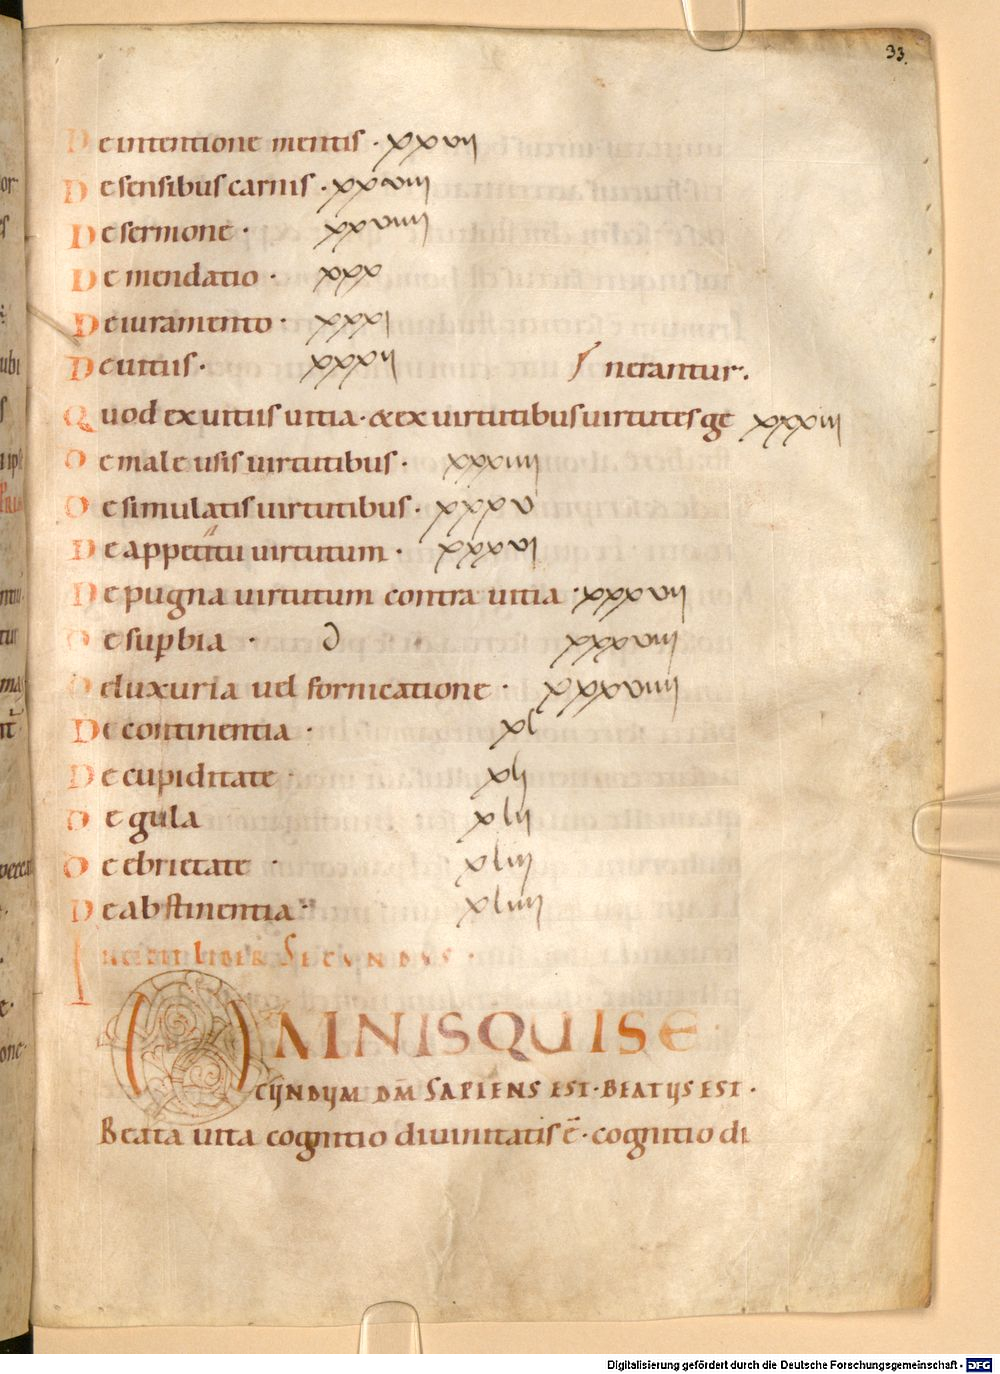 33.
De intentione mentis · xxvii
De sensibus carnis · xxviii
De sermone · xxviiii
De mendatio · xxx
De iuramento · xxxi
De uitiis · xxxii
nerantur ·
Quod ex uitiis uitia · & ex uirtutibus uirtutes ge xxxiii
De male usis uirtutibus · xxxiiii
De simulatis uirtutibus · xxxv
De appetitu uirtutum · xxxvi
De pugna uirtutum contra uitia · xxxvii
De supbia · xxxviii
De luxuria uel fornicatione · xxxviiii
De continentia · xl
De cupiditate · xli
De gula xlii
De ebrietate · xliii
De abstinentia xliiii
INCIPIT LIBER SECUNDUS ·
OMNIS QUI SE
CUNDUM DM̄ SAPIENS EST · BEATUS EST ·
Beata uita cognitio diuinitatis ē · cognitio di
Digitalisierung gefördert durch die Deutsche Forschungsgemeinschaft - DFG